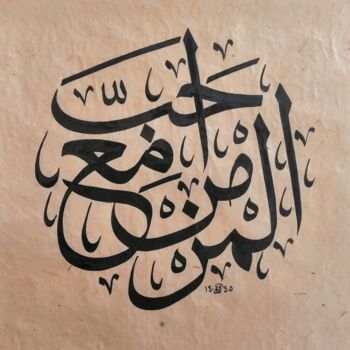 المرء مع من احبّ
١٤٤٥